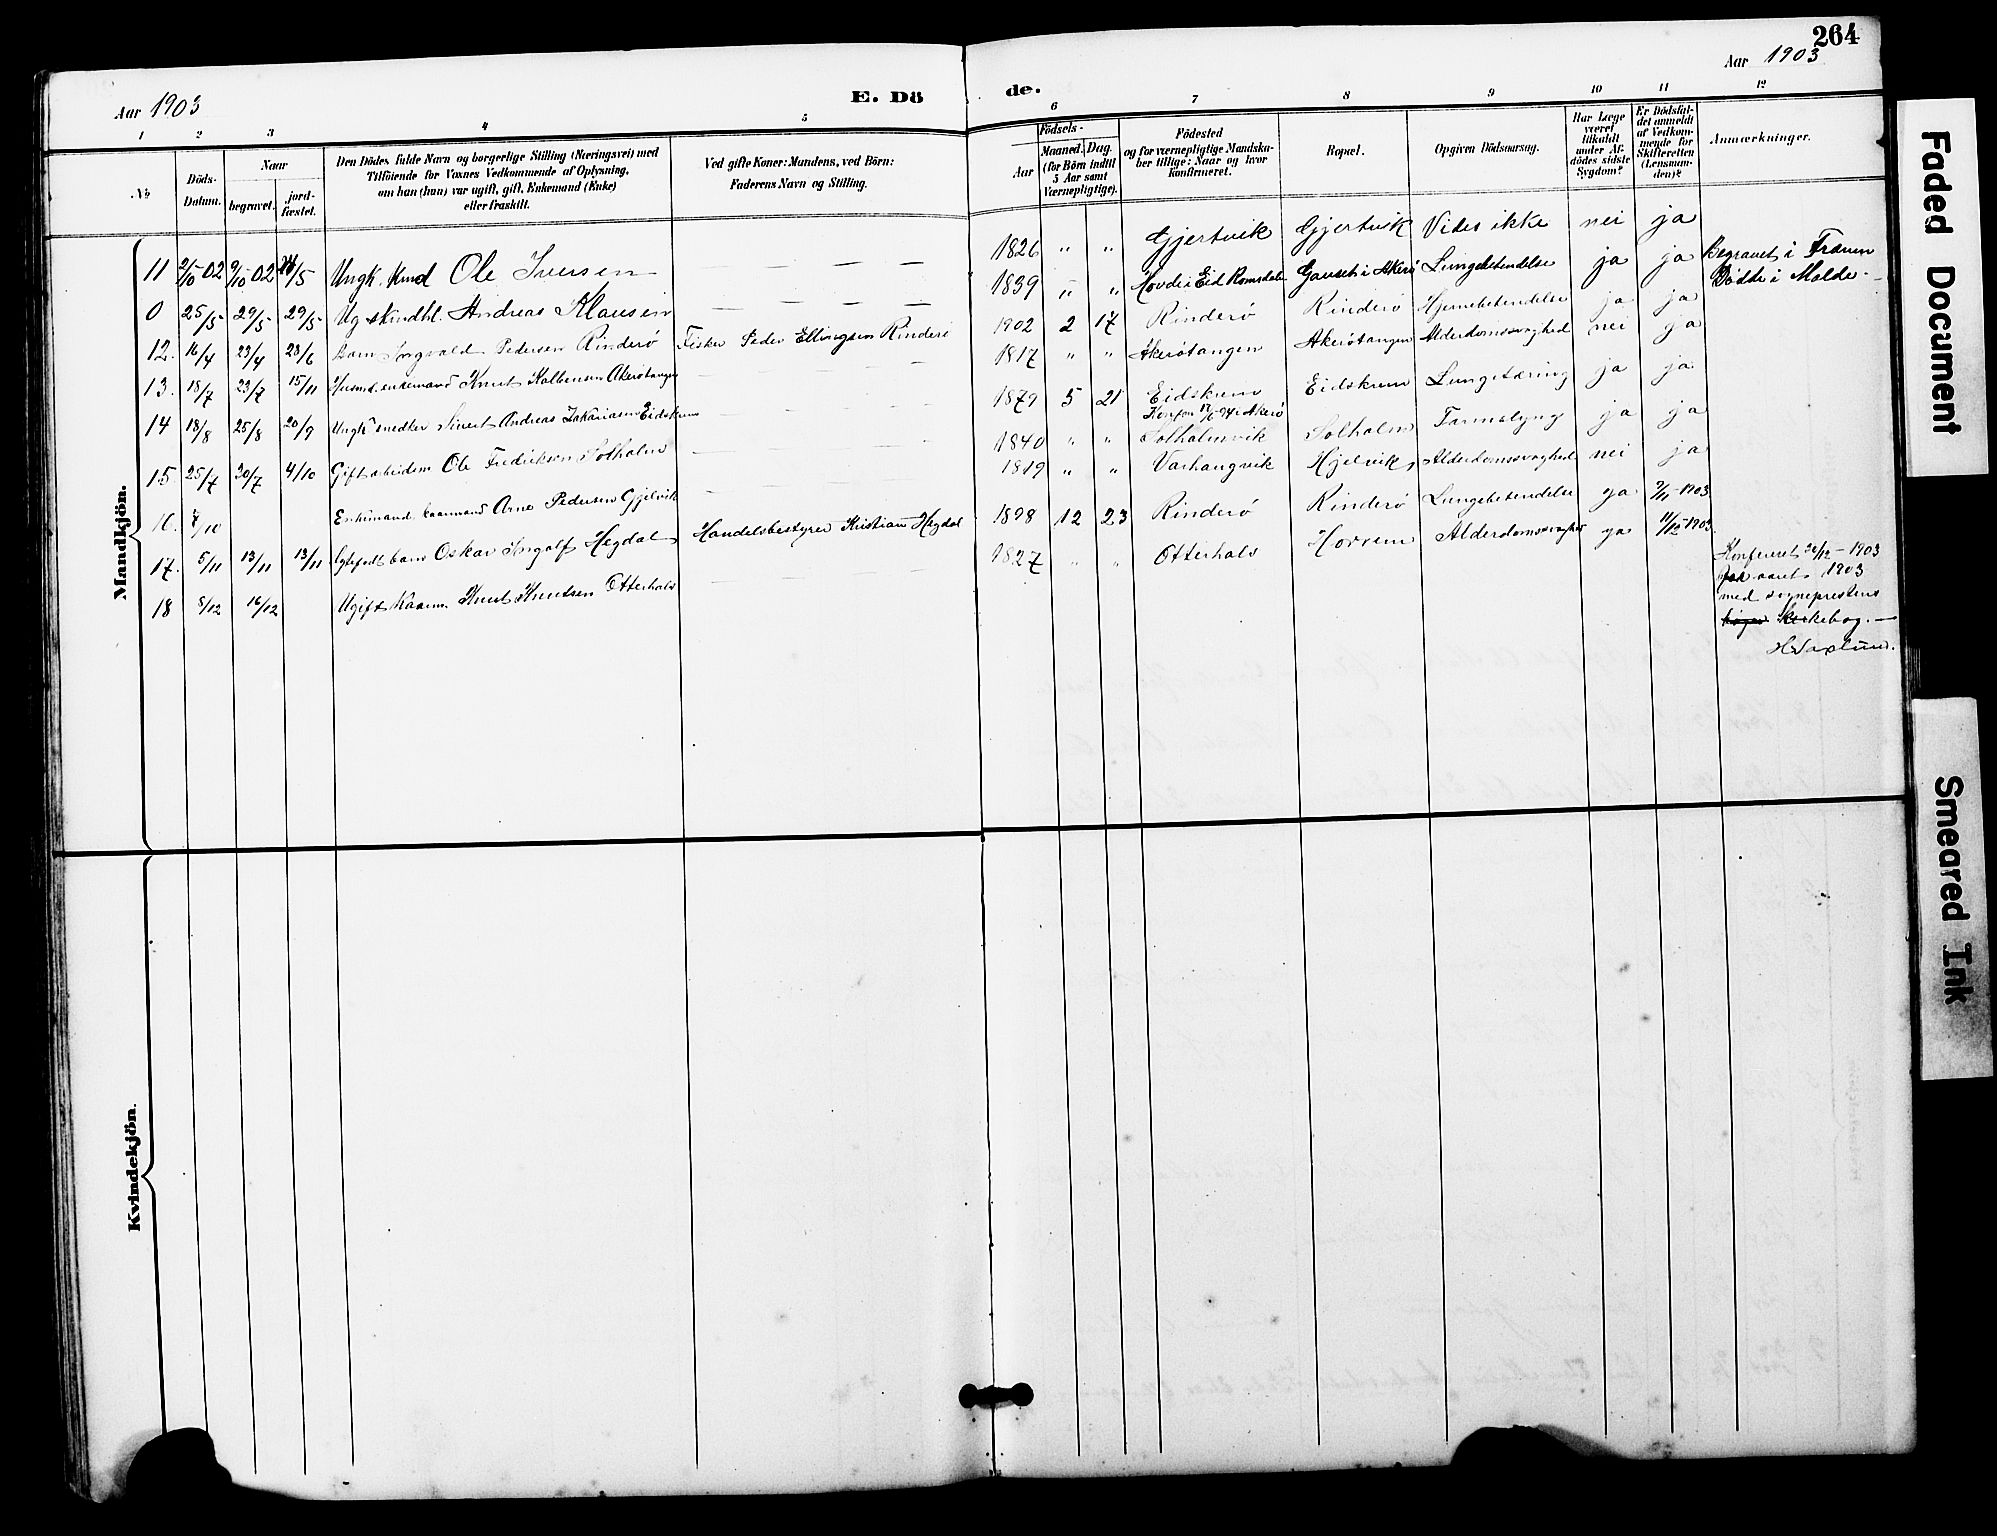 264
Aar 1903
Aar 1903
E. Dö
de.
1 2 3 4 5 6 7 8 9 10 11 12
No
Döds-Datum.
Naar
begravet.
jord-fæstet.
Den Dödes fulde Navn og borgerlige Stilling (Næringsvei) med
Tilföiende for Voxnes Vedkommende af Oplysning,
om han (hun) var ugift, gift, Enkemand (Enke)
eller fraskilt.
Ved gifte Koner: Mandens, ved Börn:
Faderens Navn og Stilling.
Födsels-
Aar
Maaned. Dag.
(for Börn indtil
5 Aar samt
Værnepligtige).
Födested
og for værnepligtige Mandska-
ber tillige: Naar og hvor
konfirmeret.
Bopæl.
Opgiven Dödsaarsag.
Har Læge
været
tilkaldt
under Af-
dödes sidste
Sygdom?
Er Dödsfal-
det anmeldt
af Vedkom-
mende for
Skifteretten
(Lensman-
den)?
Anmærkninger.
Mandkjön.
11 2/10 02 9/10 02 /5 Ungk. Ole Iversen — — — 1826 " " Gjertvik Gjertvik Vides ikke nei ja
0 25/5 29/5 29/5 Ug Andreas Klausen — — — 1839 " " Hovde i Eid Romsdalen Gauset i Akerö Lungebetendelse ja ja Begravet i Frænen
Döde i Molde.
12. 16/4 23/4 28/6 Barn Ingvald Pedersen Rinderö Fisker Peder Ellingsen Rinderö 1902 2 17 Rinderö Rinderö Hjernebetendelse ja ja
13. 18/7 23/7 15/11 Husmd. enkemand Knut Kolbensen Akerötangen — — — 1817 " " Akerötangen Akerötangen Alderdomssvaghed nei ja
14 18/8 25/8 20/9 Ungk. smedter Sivert Andreas Zakariasen Eidskrem — — — 1879 5 21 Eidskrem Eidskrem Lungetæring ja ja
Konf. 17/6-94 i Akerö
15. 25/7 30/7 4/10 Gift arbeidsm Ole Fredriksen Solholm — — — 1840 " " Solholmvik Solholm Tarmslyng ja ja
16. /10 Enkemand kaarmand Arne Pedersen Gjelvik — — — 1819 " " Varhaugvik Hjelvik Alderdomssvaghed nei ja
17. 5/11 13/11 13/11 Egtefödt barn Oskar Ingolf Hegdal Handelsbestyrer Kristian Hegdal 1898 12 23 Rinderö Rinderö Lungebetendelse ja 7/11-1903
18 5/12 16/12 Ugift Kaarm. Knut Knutsen Otterhals — — — 1827 " " Otterhals Horrem Alderdomssvaghed ja 11/12-1903
Konfereret 30/12-1903
for aaret 1903
med sogneprestens
Kirkebog. —
H. Vaslund.
Kvindekjön.
Faded Document
Smeared Ink